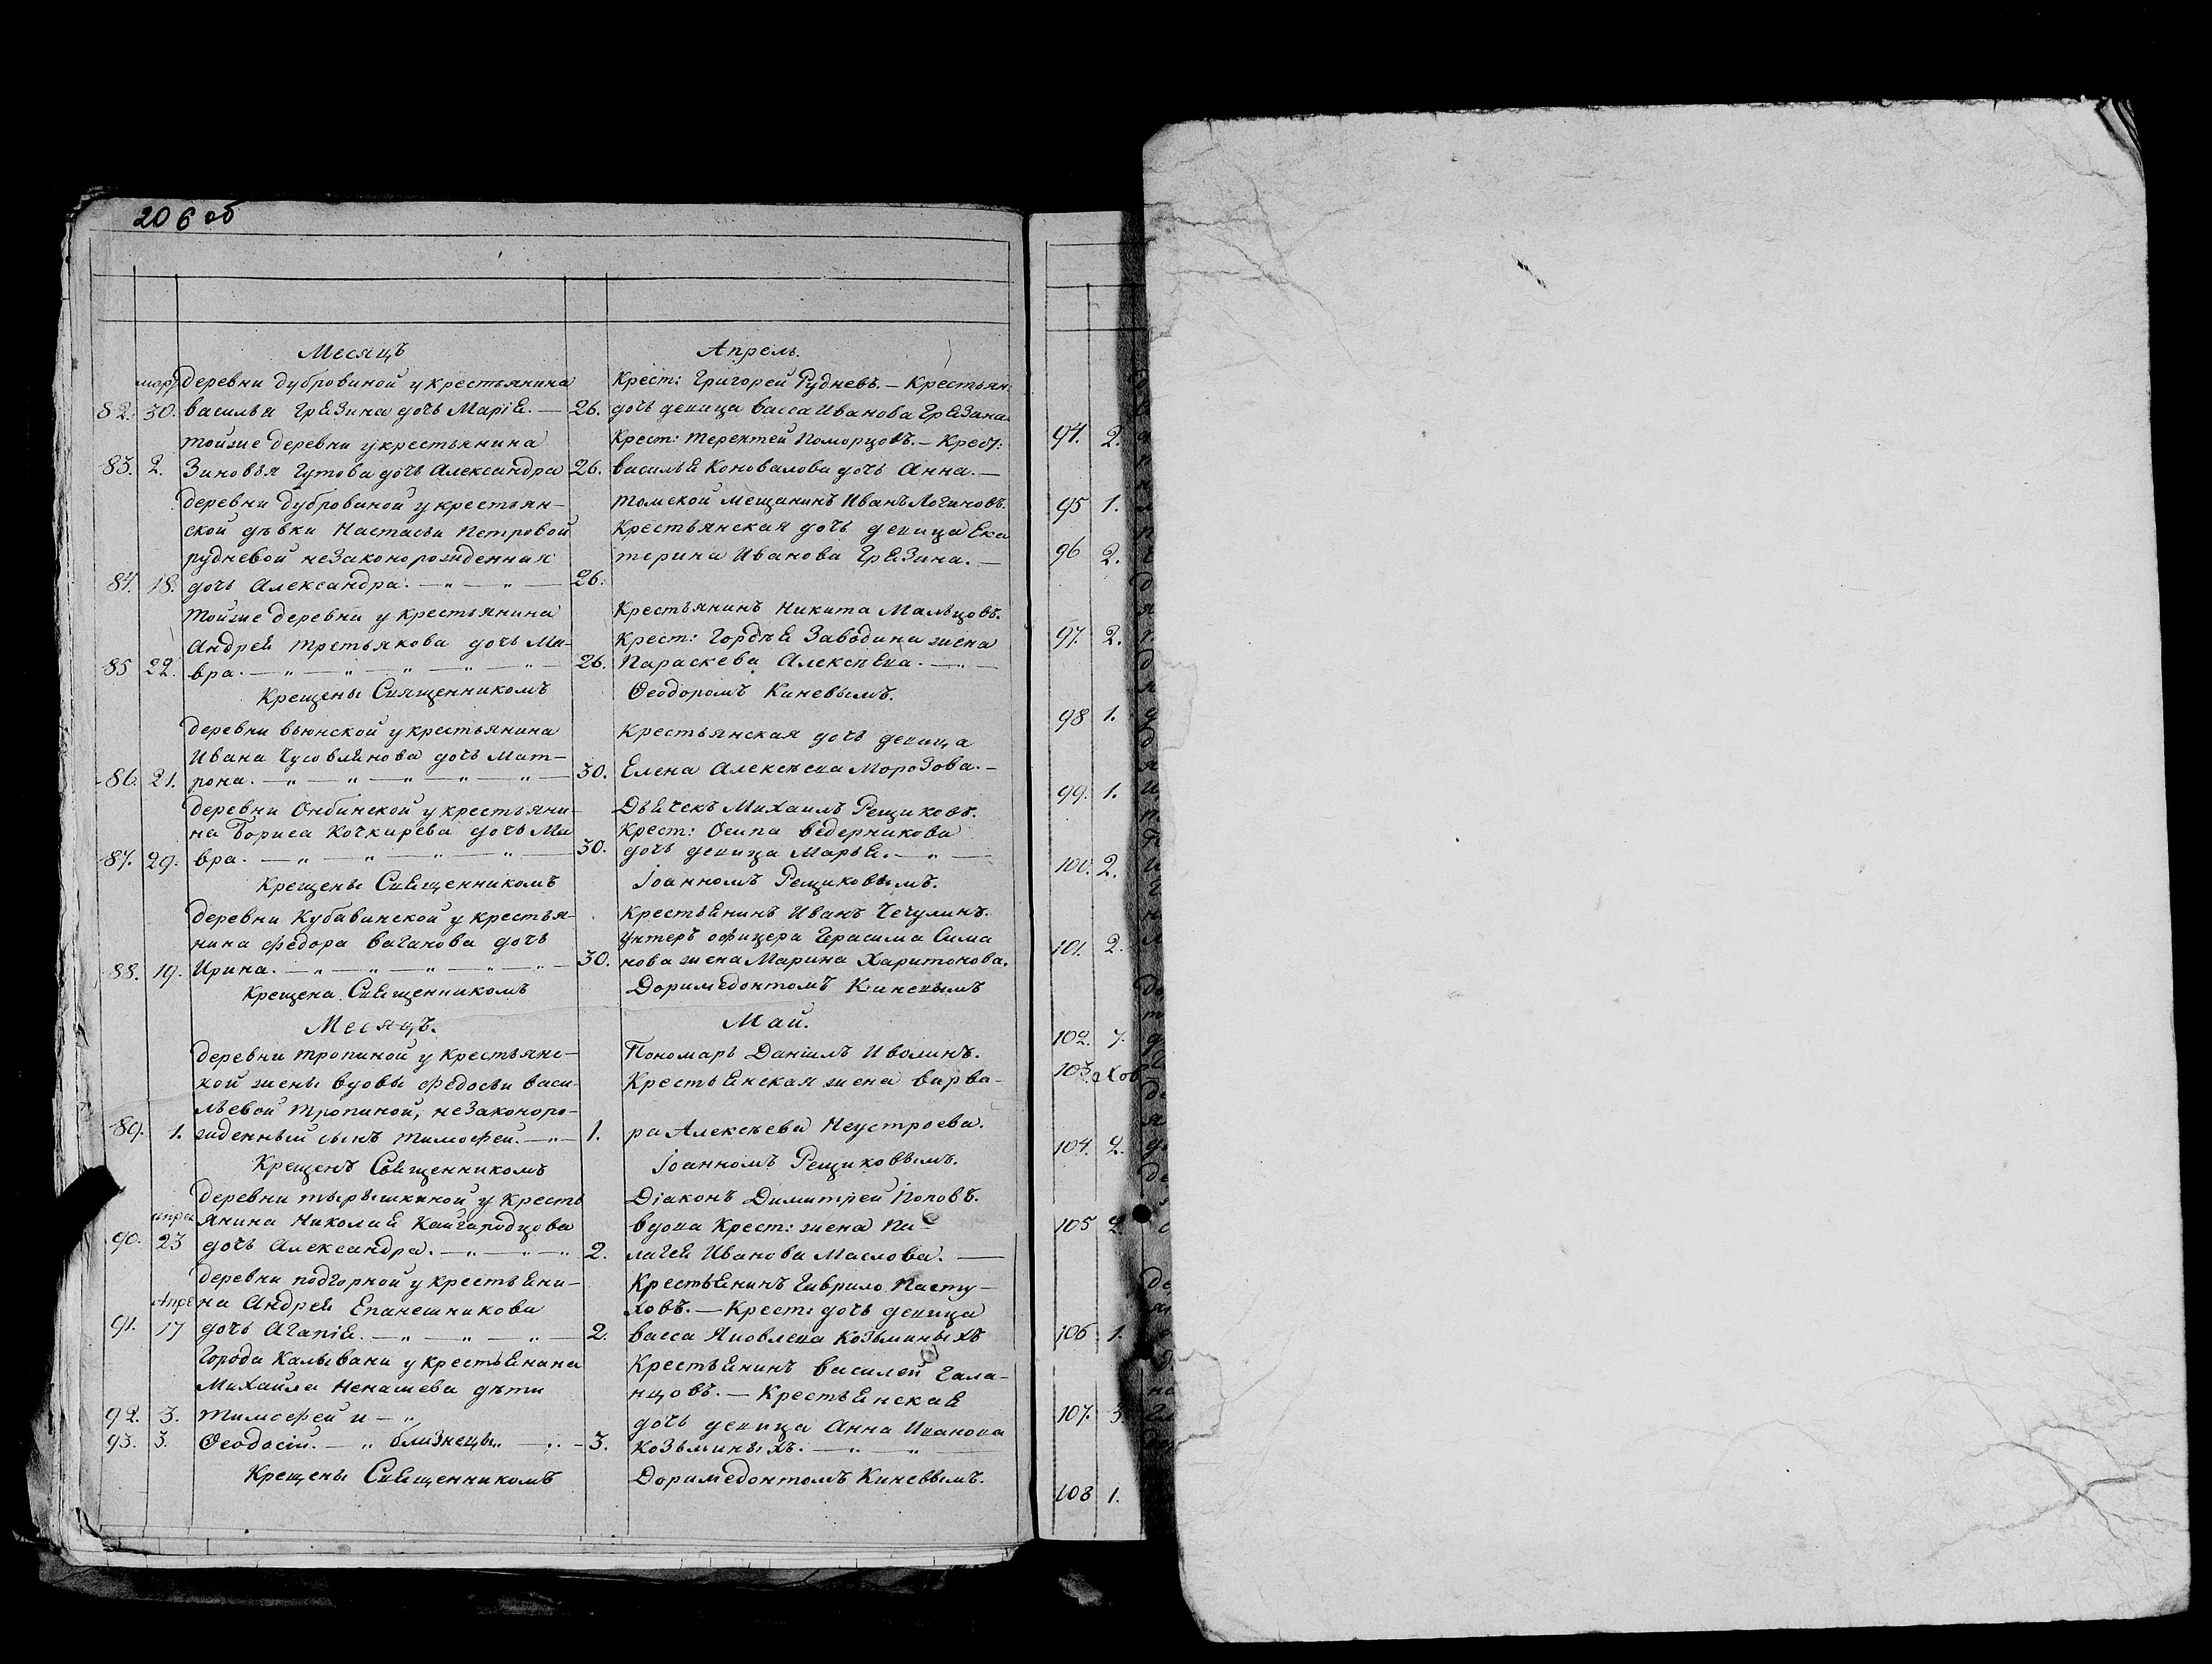 206 об
Месяцъ Апрель.
март деревни дубровиной у крестьянина Крест: Григорей Рудневъ. — Крестьян:
82. 30. василья Грязина дочь Марія. — 26. дочь девица васса Иванова Грязина
тойже деревни у крестьянина Крест: терентей Поморцовъ. — Крест:
83. 2. Зиновья Гутова дочь Александра 26. василья Коновалова дочь Анна. —
деревни дубровиной у крестьян- томской мещанинъ Иванъ Логиновъ.
ской дѣвки Настасьи Петровой Крестьянская дочь девица Ека
рудневой незаконорожденная терина Иванова Грязина. —
84. 18. дочь Александра. — „ — „ — 26.
тойже деревни у крестьянина Крестьянинъ Никита Мальцовъ.
Андрея третьякова дочь Ма- Крест: Гордѣя Заводина жена
85 22. вра. — „ — „ — „ — „ — „ — 26. Параскева Алексѣева. — „ —
Крещены Священникомъ Ѳеодоромъ Киневымъ.
деревни вьюнской у крестьянина Крестьянская дочь девица
Ивана Чусовлянова дочь Мат-
86. 21. рона. — „ — „ — „ — „ — 30. Елена Алексѣева Морозова. —
деревни Онбинской у крестьяни- Дьячекъ Михаилъ Рещиковъ.
на Бориса Кочкирева дочь Ма Крест: Осипа ведерникова
87. 29. вра. — „ — „ — „ — „ — 30. дочь девица Марья. — „ —
Крещены Священникомъ Іоанномъ Рещиковымъ.
деревни Кубавинской у крестья- крестьянинъ Иванъ Чечулинъ.
нина федора ваганова дочь Унтеръ офицера Герасима Сима
88. 19. Ирина. — „ — „ — „ — „ — „ — 30. нова жена Марина Харитонова.
Крещена Священникомъ Доримедонтомъ Киневымъ
Месяцъ. Май.
деревни тропиной у крестьянс- Пономарь Даніилъ Иволинъ.
кой жены вдовы Федосьи васи- Крестьянская жена варва-
льевой тропиной, незаконоро-
89. 1. жденный сынъ тимофей. — „ — 1. ра Алексѣева Неустроева.
Крещенъ Священникомъ Іоанномъ Рещиковымъ.
деревни тырышкиной у кресть Діаконъ Димитрей Поповъ.
апре янина Николая Кайгародцова вдова Крест: жена Пе-
90. 23 дочь Александра. — „ — „ — „ 2. лагея Иванова Маслова. —
деревни подгорной у крестьяни- Крестьянинъ Гаврило Пасту-
Апре на Андрея Епанешникова ховъ. — Крест: дочь девица
91. 17 дочь Агапія. — „ — „ — „ — 2. васса Яковлева Козьминыхъ
Города Калывани у крестьянина Крестьянинъ василей Гала-
Михайла Ненашева дѣти нцовъ. — Крестьянская
92. 3. тимофей и — „ дочь девица Анна Иванова
93. 3. Ѳеодосій. — „ близнецы „ — „ — 3. Козьминыхъ. — „ — „
Крещены Священникомъ Доримедонтомъ Киневымъ.
94. 2.
95 1.
96 2.
97. 2.
98 1.
99. 1.
100. 2.
101. 2.
102. 7.
103.
104. 2.
105 2.
106. 1.
107. 3.
108 1.